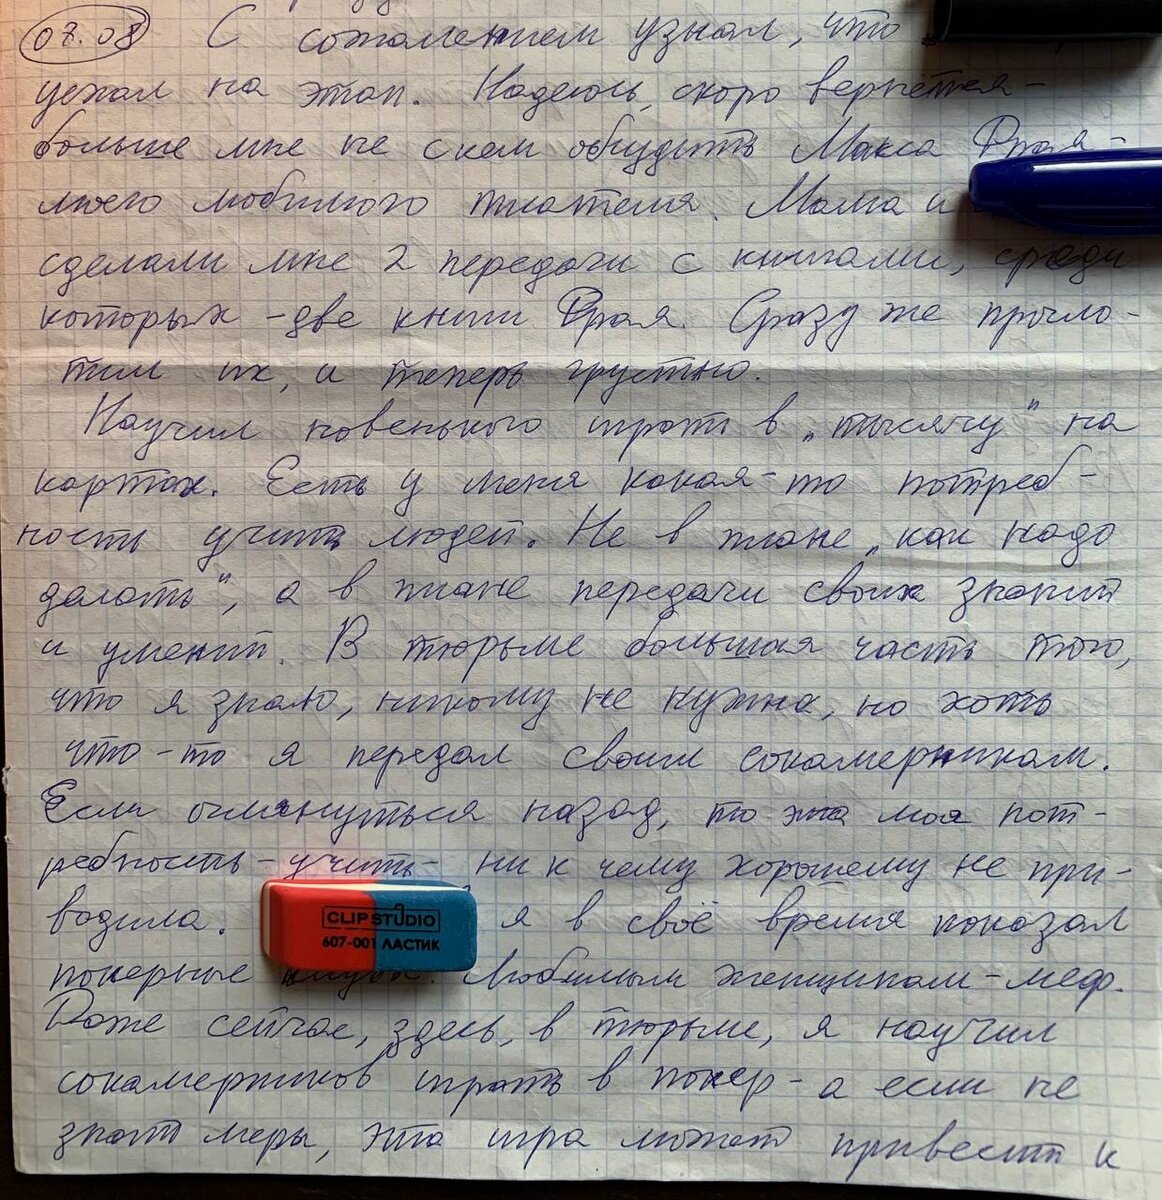 07.08 С сожалением узнал, что
уехал на этап. Надеюсь, скоро вернётся -
больше мне не с кем обсудить Макса Фрая -
моего любимого писателя. Мама и
сделали мне 2 передачи с книгами, среди
которых - две книги Фрая. Сразу же прогло-
тил их, и теперь грустно.
Научил новенького играть в „тысячу" на
картах. Есть у меня какая-то потреб-
ность учить людей. Не в плане „как надо
делать", а в плане передачи своих знаний
и умений. В тюрьме большая часть того,
что я знаю, никому не нужна, но хоть
что-то я передал своим сокамерникам.
Если оглянуться назад, то эта моя пот-
ребность - учить - ни к чему хорошему не при-
водила. я в своё время показал
CLIP STUDIO
607-001 ЛАСТИК
покерные клубы. Любимым женщинам - меф.
Даже сейчас, здесь, в тюрьме, я научил
сокамерников играть в покер - а если не
знать меры, эта игра может привести к